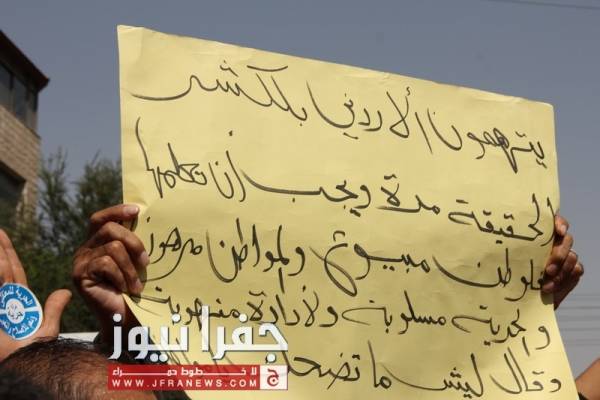 يتهمون ألأردني بلكشر
الحقيقة مرة ويجب أن تعلمها
فلوطن مبيوع ولمواطن مرهون
والحرية مسلوبة ولأرادة منهوبة
وقال ليش ما تضحك
جفرا نيوز
لا خطوط حمراء
WWW.JFRANEWS.COM